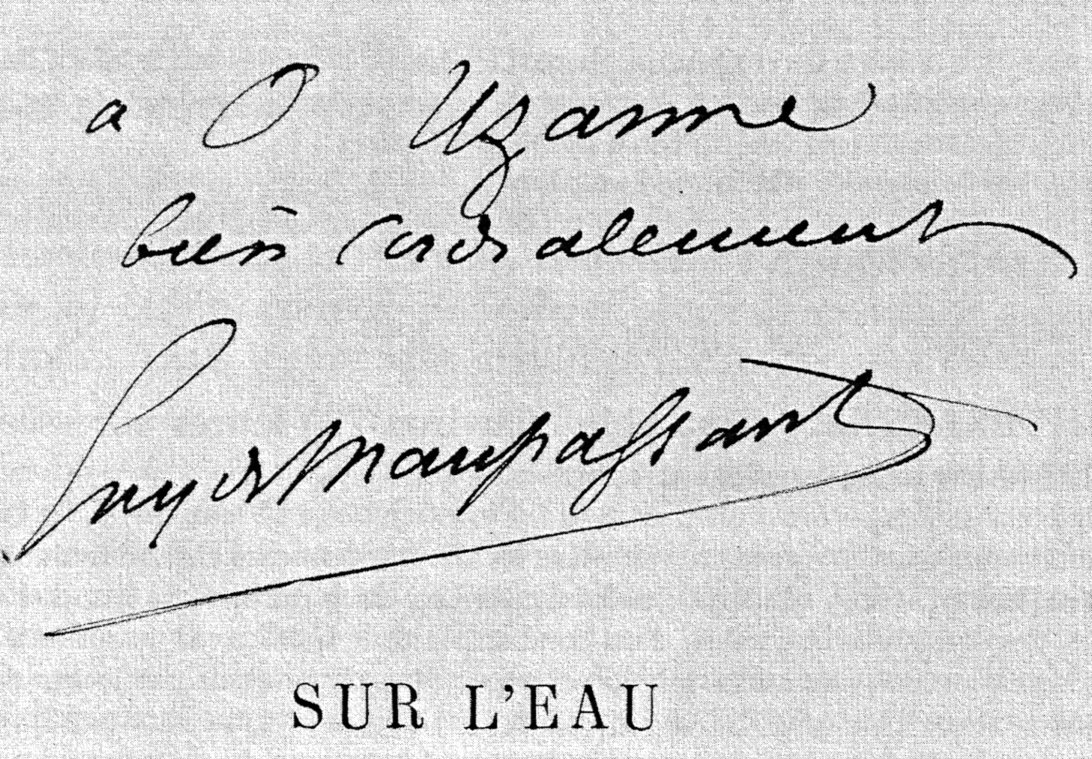 a O Uzanne
bien cordialement
Guy de Maupassant
SUR L'EAU